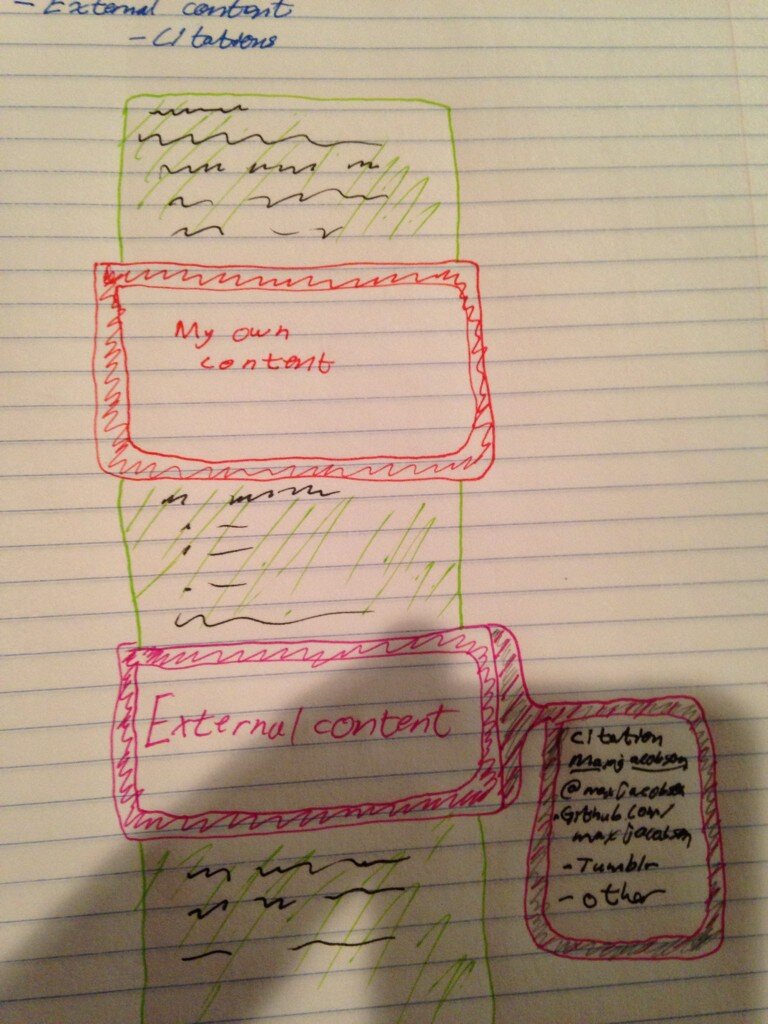 - External content
- Citations
My own
content
External content
Citation
Maxjacobson
@maxjacobson
• Github.com/
maxjacobson
- Tumblr
- other